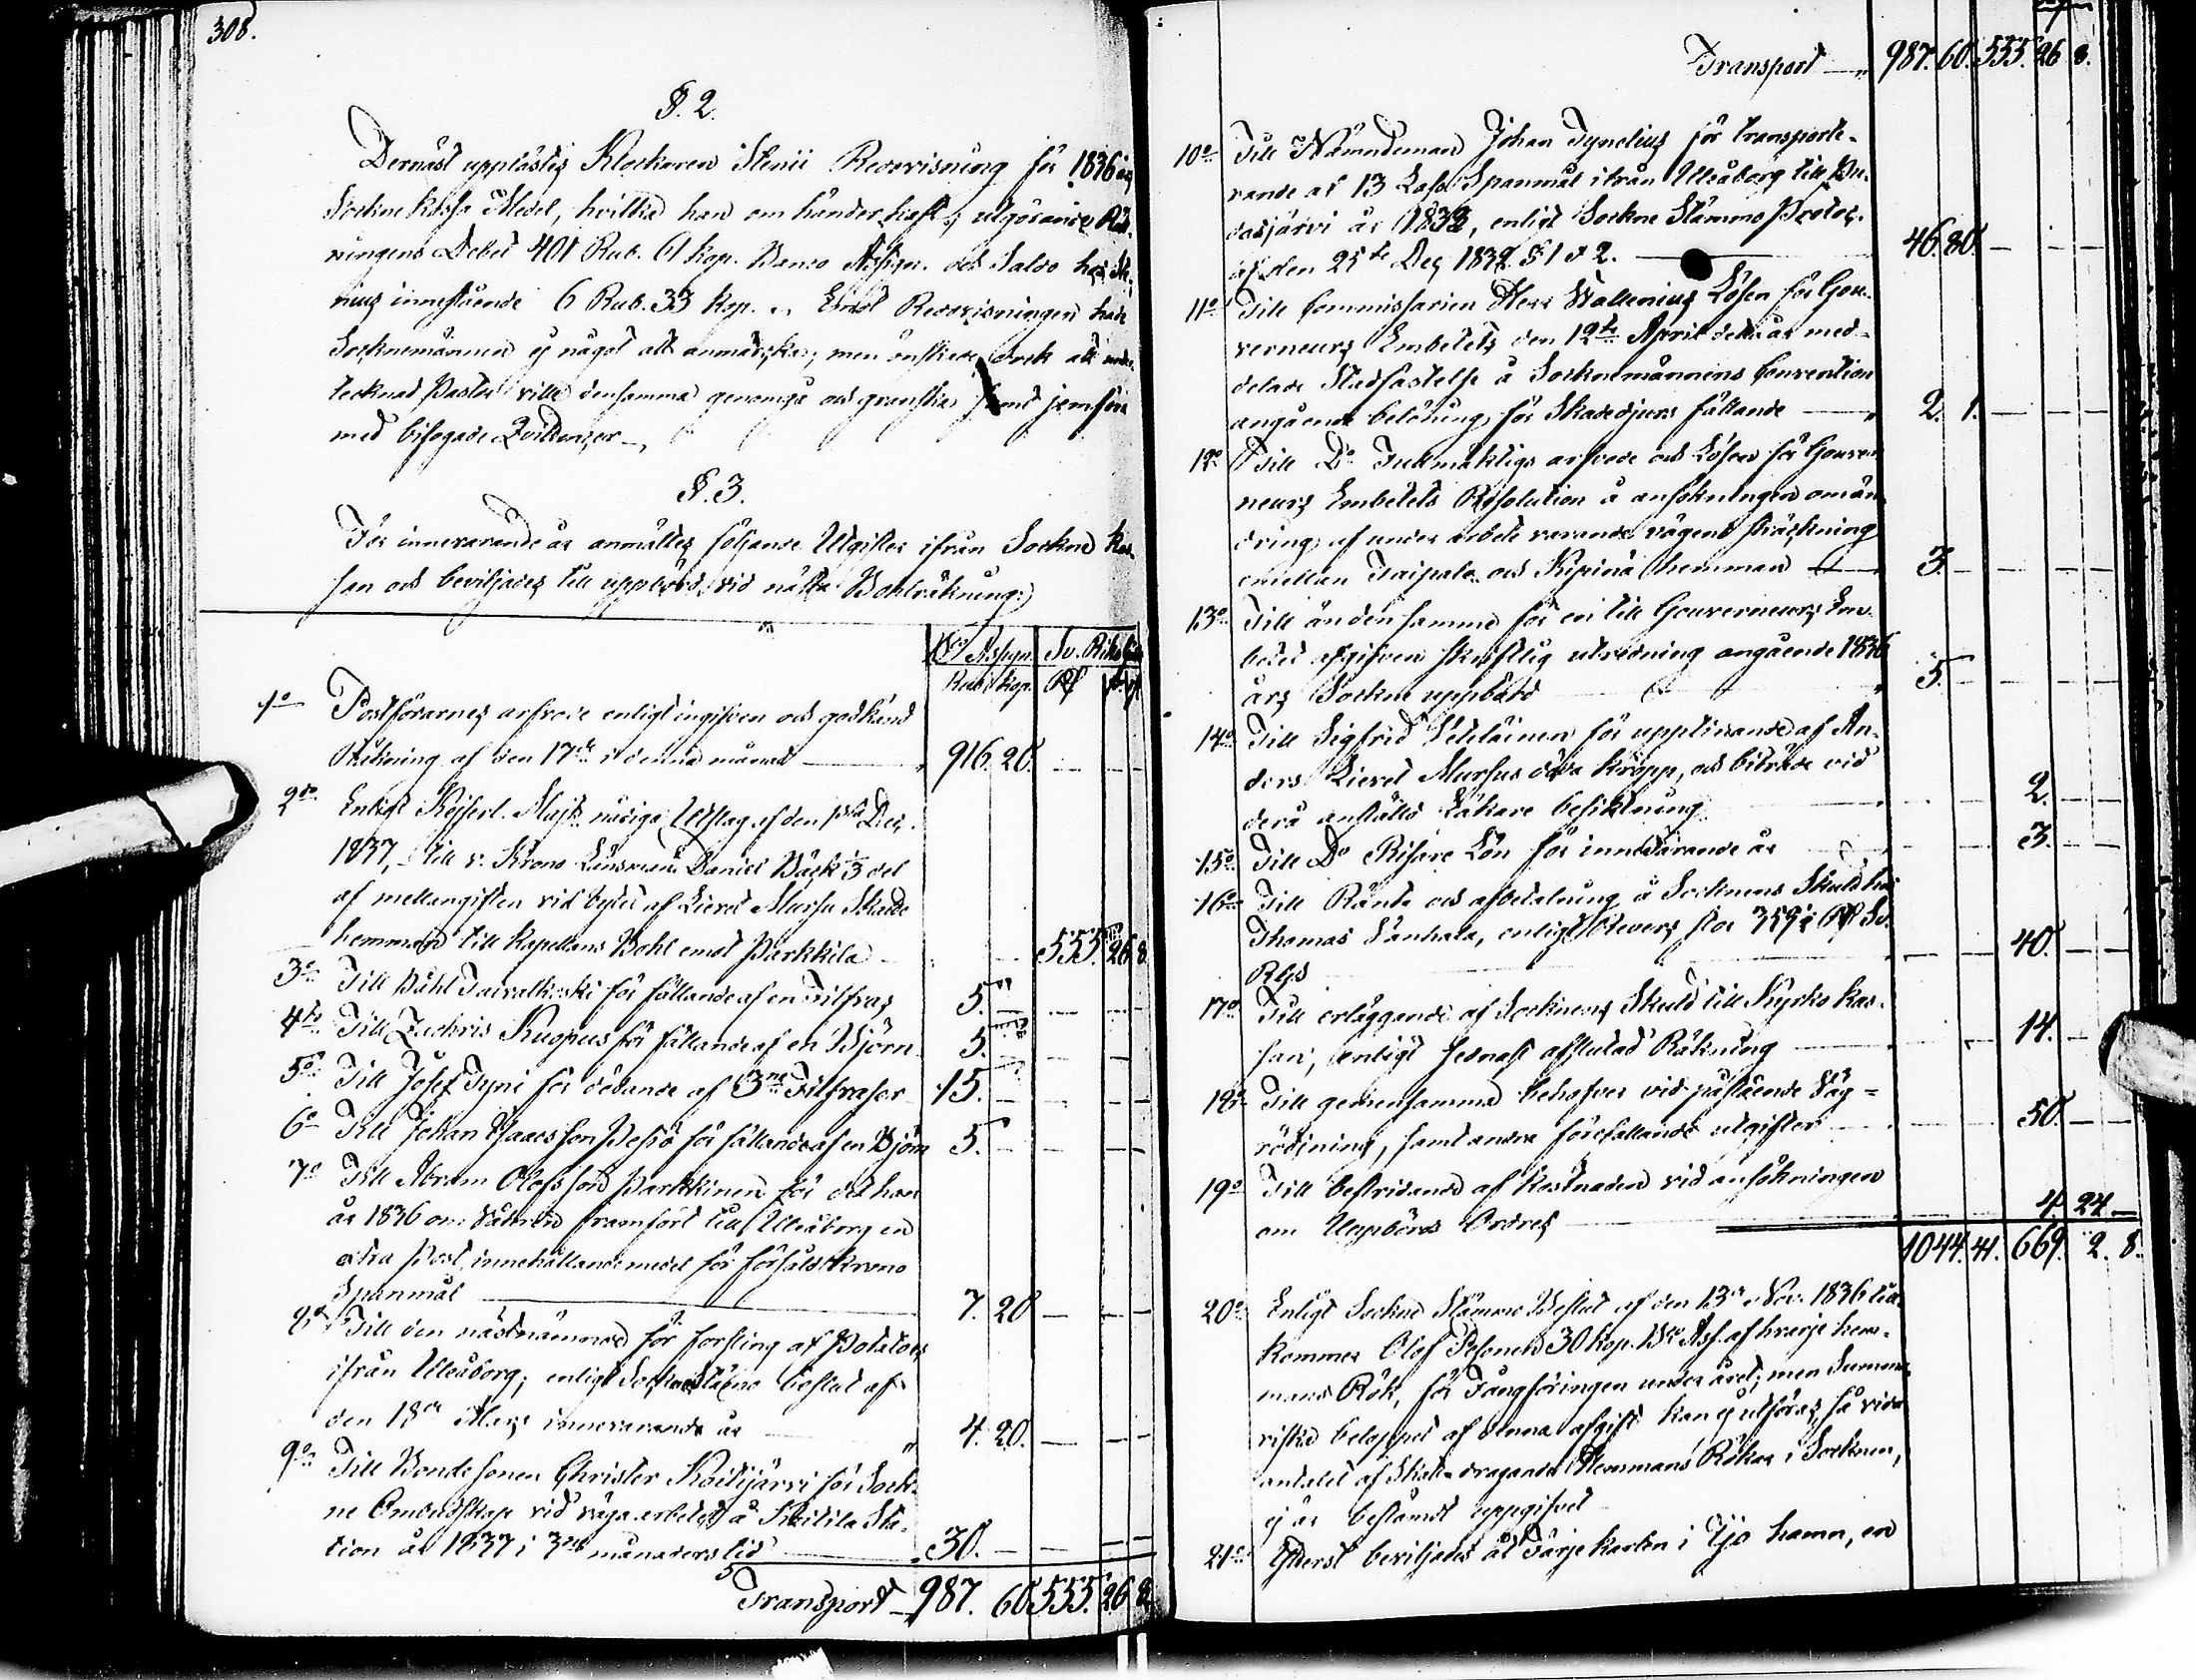 308.
§. 2.
Dernäst upplästes Klockaren Stenii Redovisning för 1836 års
Sockne Kassa Medel, hvilka han om händer haft; utgörande Räk-
ningens Debet 401 Rub. 61 kop. Banco Assign. och Saldo hos Ste-
nius innestående 6 Rub. 33 kop. Emot Redovisningen hade
Socknemännen ej något att anmärka; men önskade dock att under-
tecknad Pastor ville densamma genomgå och granska samt jemföra
med bifogade Qvittencer.
§. 3.
För innevarande år anmältes följande Utgifter ifrån Sockne Kas-
san och beviljades till uppbörd vid nästa Bohlräkning:
Bco Assign. Sv. Riksgäld
Rub. kop. Rd s. r.
1o Postförarnes arfvode enligt ingifven och godkänd
Räkning af den 17de i denna månad 916. 20. — —
2do Enligt Kejserl. Majts nådiga Utslag af den 1sta Dec.
1837, till v. Krono Länsman Daniel Bäck 1/3 del
af mellangiften vid bytet af Lieved Mursu Skatte
hemman till Kapellans Bohl emot Parkkila 555. 26. 8.
3o Till Påhl Taivalkoski för fällande af en Filfras 5. — —
4to Till Zachris Kuopus för fällande af en Björn 5. — —
5o Till Josef Tyni för dödande af 3ne Filfrasar 15. — —
6o Till Johan Isaacsson Pesiö för fällande af en Björn 5. — —
7o Till Abram Olofsson Parkkinen för det han
år 1836 om Våhren framfört till Uleåborg en
extra Post, innehållande medel för försåld Krono
Spanmål 7. 20 — —
8o Till den nästnämnde för forsling af Potatoes
ifrån Uleåborg; enligt Sockne Stämo beslut af
den 18de Mars innevarande år 4. 20. — —
9o Till Bondesonen Christer Koitijärvi för Sock-
ne Ombudskap vid vägaarbetet å Kiilila Sta-
tion år 1837 i 3ne månaders tid 30. — —
Transport 987. 60 555. 26. 8.
Transport 987. 60. 555. 26 8.
10o Till Nämndeman Johan Tynelius för transporte-
rande af 13 Lass Spanmål ifrån Uleåborg till Pu-
dasjärvi år 1833, enligt Sockne Stämmo Protoc.
af den 25te Dec. 1832 § 1 o 2. 46. 80. — — —
11o Till Commissarien Herr Wallenius Lösen för Gou-
verneurs Embetets den 12te April detta år med-
delade Stadfästelse å Socknemännens Convention
angående belöning för Skadedjurs fällande 2. 1. — — —
12o Till Do Fullmäktigs arfvode och Lösen för Gouver-
neurs Embetets Resolution å ansökningen om än-
dring af under arbete varande vägens sträckning
emellan Taipale och Kipinä hemman 3. — — — —
13o Till än densamme för en till Gouverneurs Em-
betet afgifven skriftlig utredning angående 1836
års Sockne uppbörd 5. — — — —
14o Till Sigfrid Vetelainen för upptinande af An-
ders Lieved Mursus döda kropp, och biträde vid
derå anställd Läkare besiktning 2. — —
15o Till Do Risare Lön för innevarande år 3. — —
16o Till Ränta och afbetalning å Socknens Skuld hos
Thomas Vanhala, enligt Revers stor 359 1/2 Rd Sv.
Rgs 40. — —
17o Till erläggande af Socknens Skuld till Kyrko kas-
san, enligt senast afslutad Räkning 14. —
18o Till gemensamma behofver vid påstående Väg-
rödjning, samt andra förefallande utgifter 50. — —
19o Till bestridande af Kostnaden vid ansökningen
om Uppbörds Ordres 4. 24. —
1044. 41. 669. 2. 8.
20o Enligt Sockne Stämmo Beslut af den 13de Nov. 1836 till-
kommer Olof Pesonen 30 kop. Bco Ass. af hvarje hem-
mans Rök, för Fångföringen under året; men Summa-
riska beloppet af denna afgift kan ej utföras, så vida
antalet af Skatt-dragande Hemmans Rökar i Socknen,
ej är bestämdt uppgifvet
21o Ytterst beviljades åt Färjekarlen i Ijo hamn, en